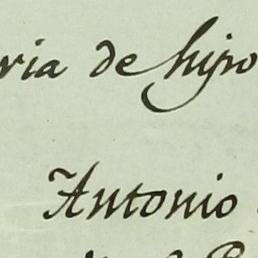 ria de hijo
Antonio